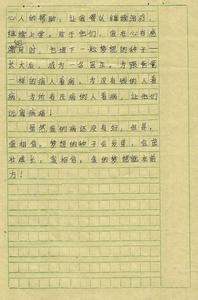 心人的帮助，让爸爸以继续治疗，
继续上学。对于他们，我在心存感
激的同时，也埋下一粒梦想的种子：
长大后，成为一名医生，为跟爸爸
一样的病人看病，为没有钱的人看
病，为所有的病人看病，让他们
远离病痛！
虽然我的病还没有好，但是，
我相信，梦想的种子会发芽，会茁
壮成长，我相信，我的梦想就在前
方！